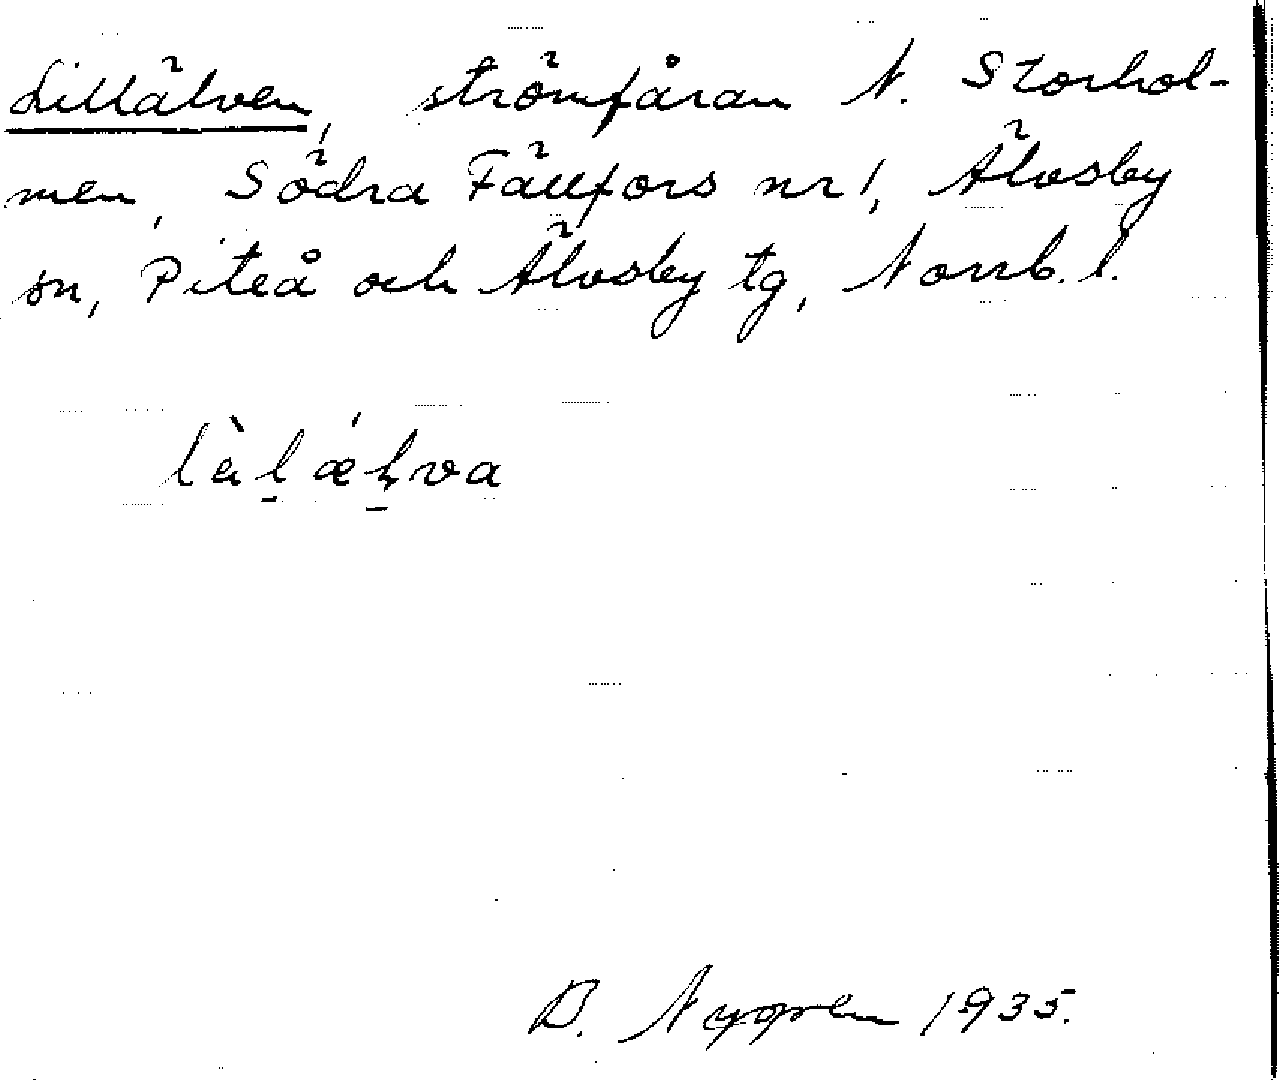 Lillälven, strömfåran N. Storhol-
men, Södra Fällfors nr 1, Älvsby
sn, Piteå och Älvsby tg, Norrb. l.
làl̠ǽl̠va
B. Nygren 1935.